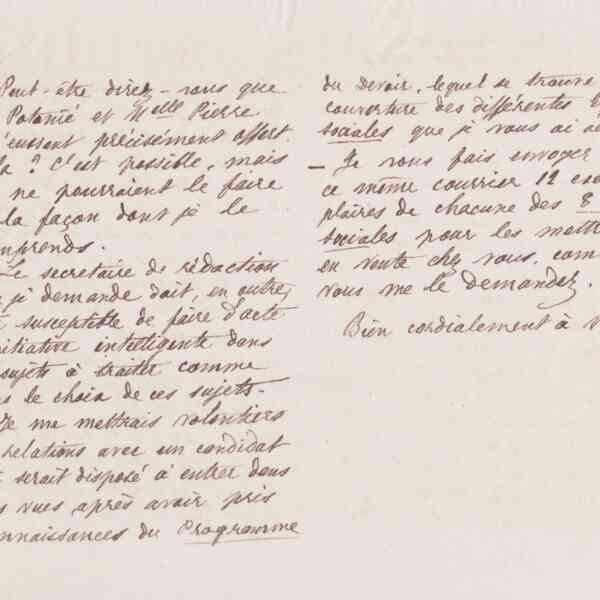 Peut-être direz-vous que
Potonié et Melle Pierre
eussent précisément offert
? C'est possible, mais
ne pourraient le faire
la façon dont je le
mprends.
Le secretaire de rédaction
je demande doit, en outre,
susceptible de faire d'acte
itiative intelligente dans
sujets à traiter comme
s le choix de ces sujets.
Je me mettrais volontiers
relations avec un candidat
serait disposé à entrer dans
s vues après avoir pris
nnaissances du Programme
du Devoir, lequel se trouve
couverture des différentes
sociales que je vous ai
_ Je vous fais envoyer
ce même courrier 12 exe
plaires de chacune des 8
sociales pour les mettre
en vente chez vous, com
vous me le demandez.
Bien cordialement à v